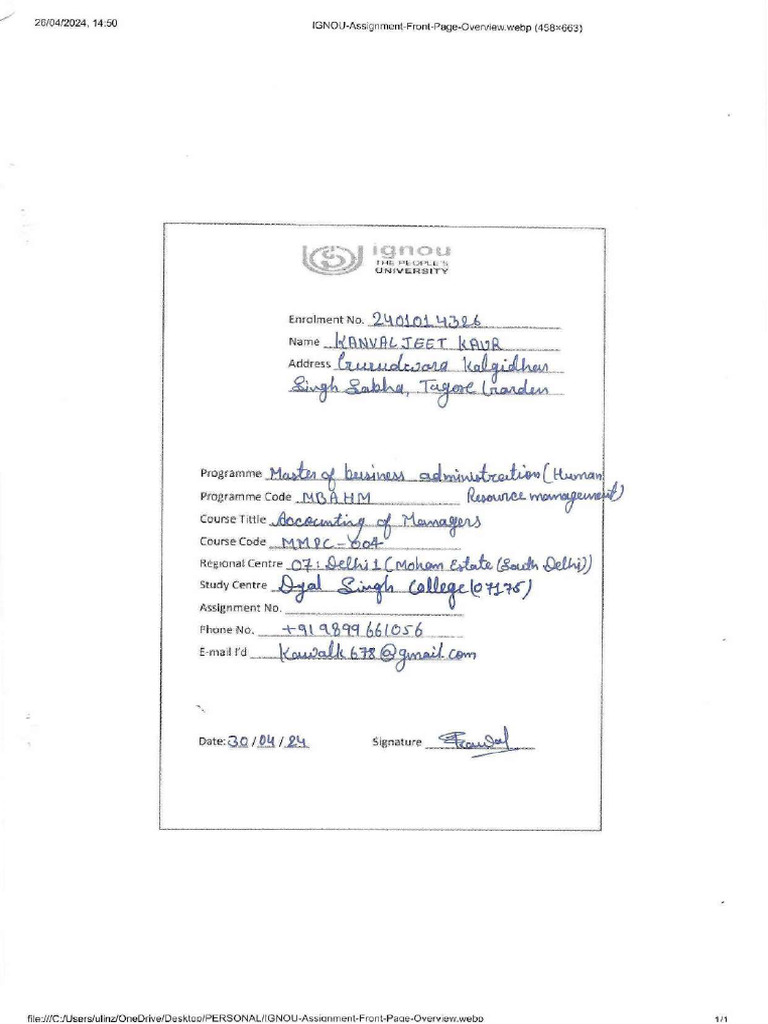 26/04/2024, 14:50
IGNOU-Assignment-Front-Page-Overview.webp (458×663)
ignou
THE PEOPLE'S
UNIVERSITY
Enrolment No. 2401014386
Name KANVALJEET KAUR
Address Gurudwara Kalgidhar
Singh Sabha, Tagore Garden
Programme Master of business administration (Human
Programme Code MBAHM Resource management)
Course Tittle Accounting of Managers
Course Code MMPC-004
Regional Centre 07: Delhi 1 (Mohan Estate (South Delhi))
Study Centre Dyal Singh College (07175)
Assignment No.
Phone No. +91 9899661056
E-mail I'd kawalk678@gmail.com
Date: 30/04/24 Signature
file:///C:/Users/ulinz/OneDrive/Desktop/PERSONAL/IGNOU-Assignment-Front-Page-Overview.webp
1/1